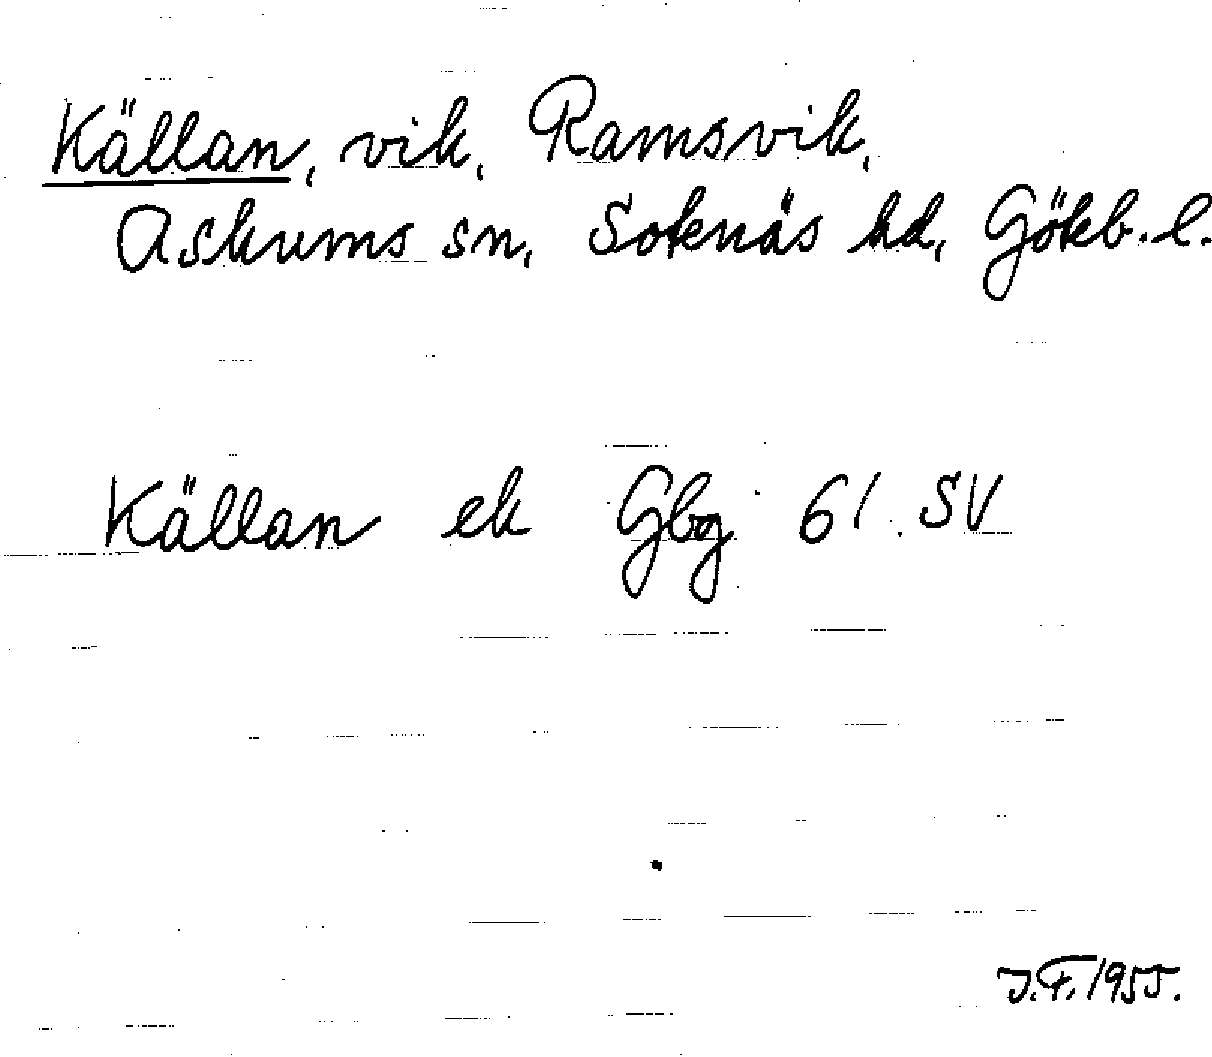 Källan, vik, Ramsvik,
Askums sn, Sotenäs hd, Göteb. l.
Källan ek Gbg 61. SV
J.F. 1955.